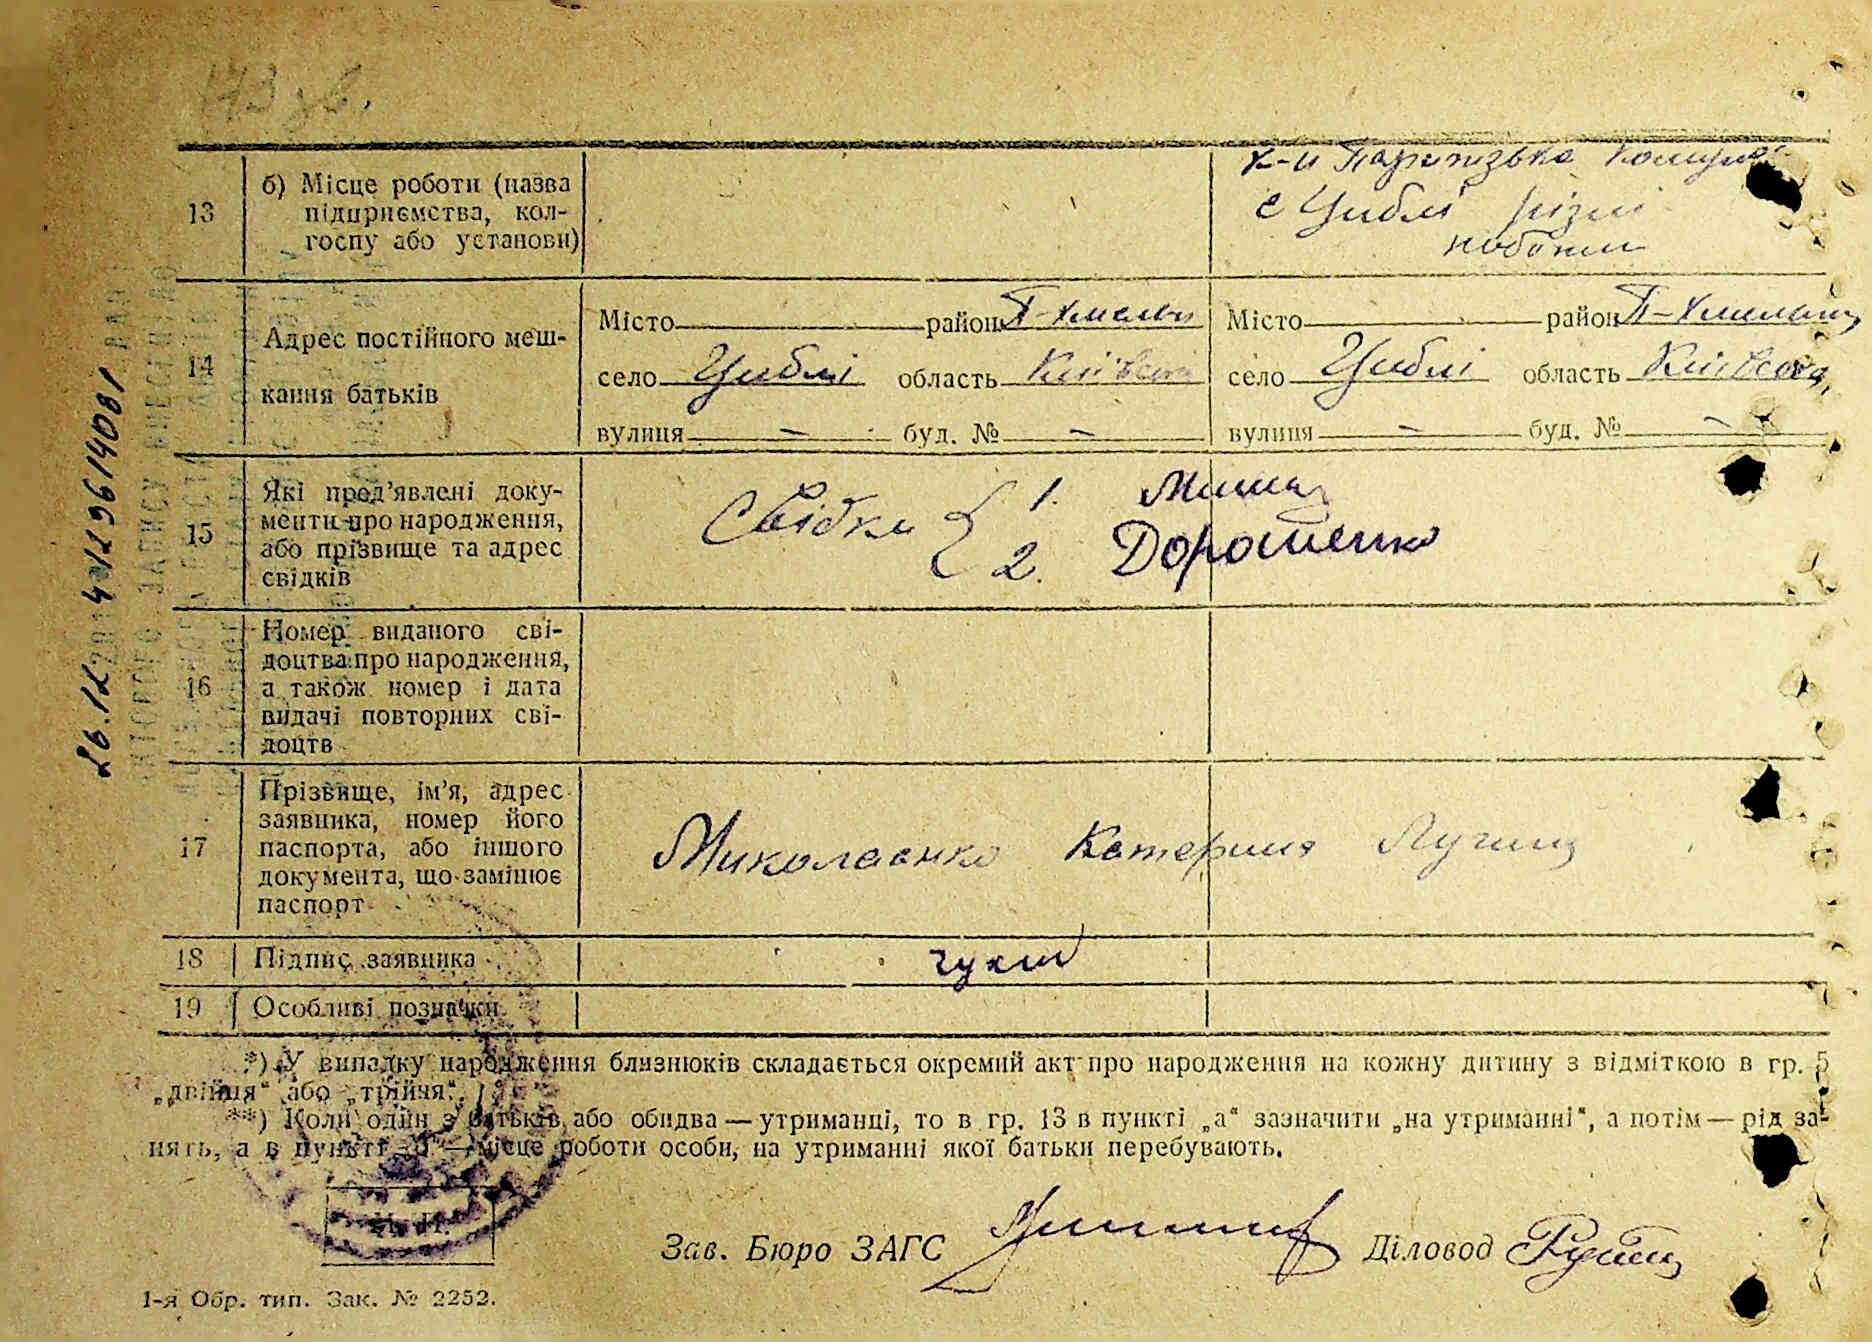 13
б) Місце роботи (назва
підприємства, кол-
госпу або установи)
к-п Паризька комуна
с Циблі різні
роботи
14
Адрес постійного меш-
кання батьків
Місто район П-Хмельн
село Циблі область Київська
вулиця - буд. № -
Місто район П-Хмельн
село Циблі область Київська
вулиця - буд. № -
15
Які пред’явлені доку-
менти про народження,
або прізвище та адрес
свідків
Свідки { 1.
2. Дорошенко
16
Номер виданого сві-
доцтва про народження,
а також номер і дата
видачі повторних сві-
доцтв
17
Прізвище, ім’я, адрес
заявника, номер його
паспорта, або іншого
документа, що замінює
паспорт
Миколаенко Катерина
18
Підпис заявника
19
Особливі позначки
*) У випадку народження близнюків складається окремий акт про народження на кожну дитину з відміткою в гр. 5
„двійня“ або „трійня“.
**) Коли один з батьків або обидва — утриманці, то в гр. 13 в пункті „а“ зазначити „на утриманні“, а потім — рід за-
нять, а в пункті „б“ — місце роботи особи, на утриманні якої батьки перебувають.
М. П.
Зав. Бюро ЗАГС
Діловод
1-я Обр. тип. Зак. № 2252.